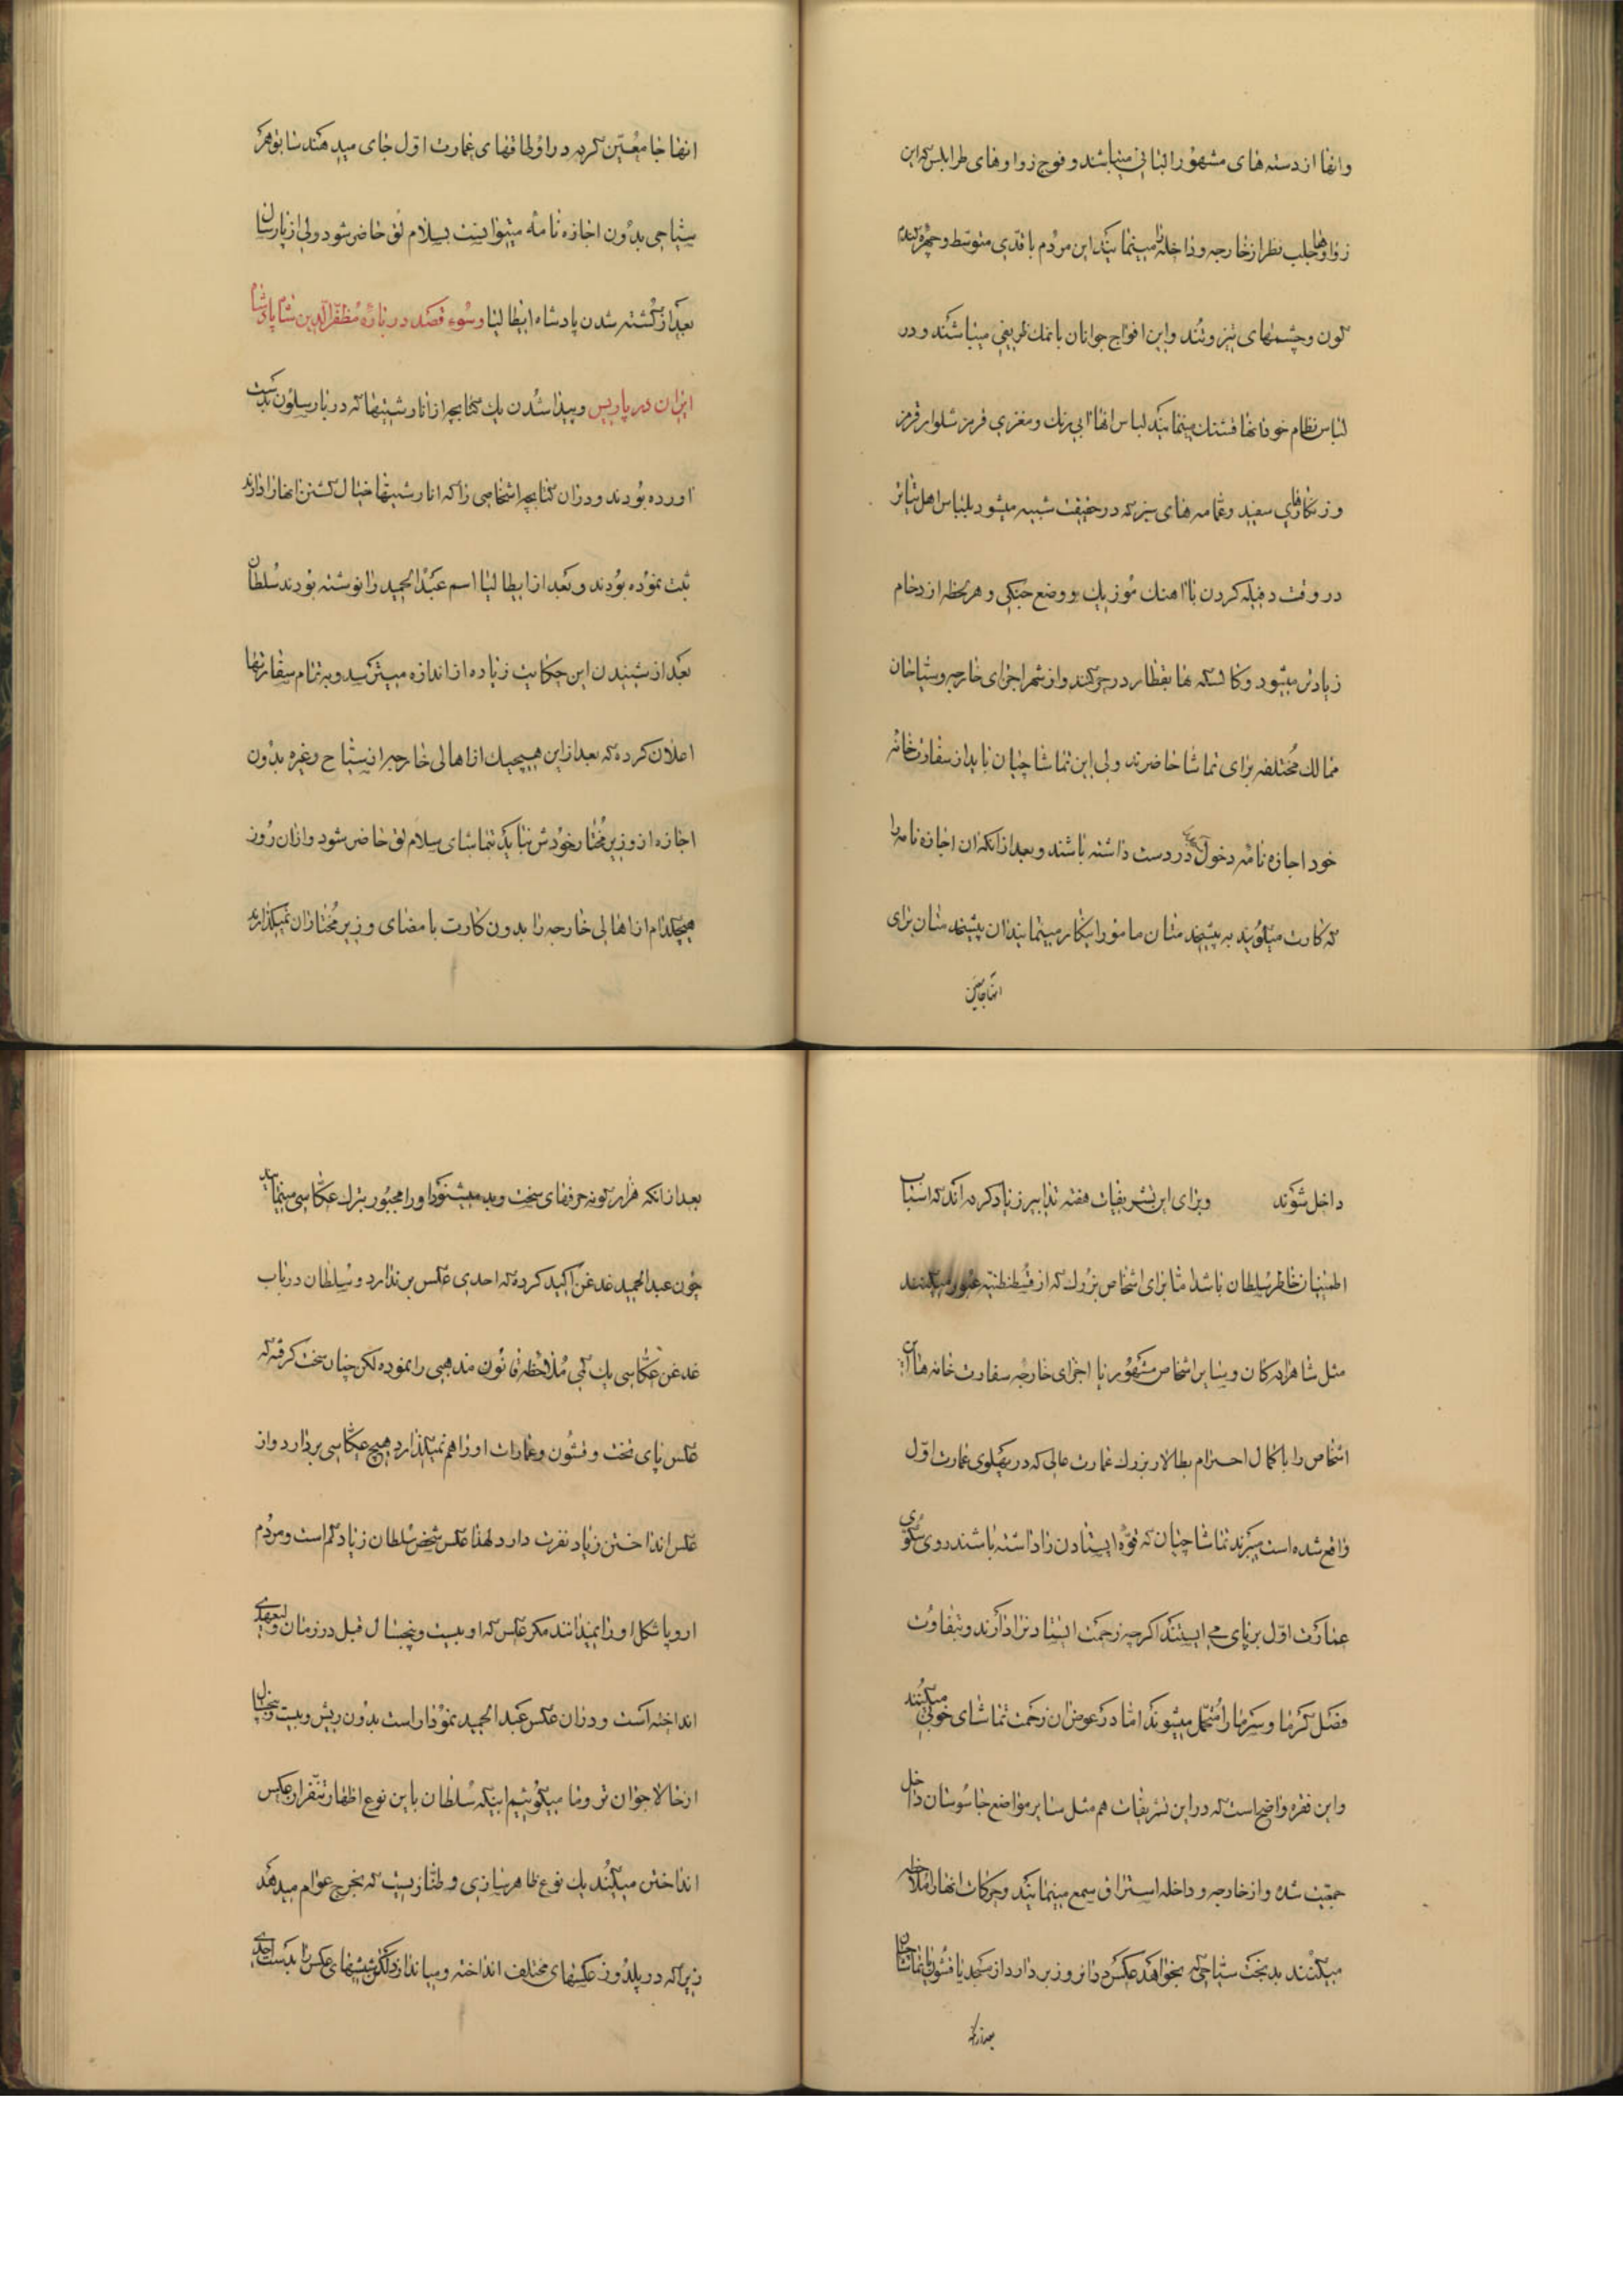 وانها از دسته های مشهور البانی میباشند و فوج زواوهای طرابلس که این
زواوها جلب نظر از خارجه و داخله را مینمایند این مردم با قدی متوسط و چهره گندم
گون و چشمهای تیز و تند و این افواج جوانان با نمك ظریفی میباشند و در
لباس نظام خود انها قشنك مینمایند لباس انها ابی رنك و مغزی قرمز شلوار قرمز
و زنكارهای سفید و عمامه های سبز که در حقیقت شبیه میشود بلباس اهل تیاتر
در وقت دفیله کردن با اهنك موزیك و وضع جنکی و هر لحظه ازدحام
زیادتر میشود و کالسکه ها بقطار در حرکتند و از شهر اجزای خارجه و سیاحان
ممالك مختلفه برای تماشا حاضرند ولی این تماشاچیان باید از سفارتخانه
خود اجازه نامه دخول در دست داشته باشند و بعد از انکه ان اجازه نامه را
که کارت میگویند به پیشخدمتان مامور اینکار مینمایند ان پیشخدمتان برای
انها جا معین
انها جا معین کرده در اوطاقهای عمارت اول جای میدهند سابق هر
سیاحی بدون اجازه نامه میتوانست بسلام لق حاضر شود ولی از پارسال
بعد از کشته شدن پادشاه ایطالیا و سوء قصد درباره مظفرالدین شاه پادشاه
ایران در پاریس و پیدا شدن یك کتابچه از انارشیتها که در بارسلون بدست
اورده بودند و در ان کتابچه اشخاصی را که انارشیتها خیال کشتن انها را دارند
ثبت نموده بودند و بعد از ایطالیا اسم عبدالحمید را نوشته بودند سلطان
بعد از شنیدن این حکایت زیاده از اندازه میترسید و به تمام سفارتها
اعلان کرده که بعد از این هیچیك از اهالی خارجه از سیاح و غیره بدون
اجازه از وزیر مختار خودش نباید بتماشای سلام لق حاضر شود و از ان روز
هیچکدام از اهالی خارجه را بدون کارت با مضای وزیر مختارشان نمیگذارند
داخل شوند و برای این تشریفات هفته تدابیر زیاد کرده اند که اسباب
اطمینان خاطر سلطان باشد اما برای اشخاص بزرك که از قسطنطنیه عبور میکنند
مثل شاهزادکان و سایر اشخاص مشهور با اجزای خارجه سفارت خانه ها این
اشخاص را با کمال احترام بطالار بزرك عمارت عالی که در پهلوی عمارت اول
واقع شده است میبرند تماشاچیان که قوه ایستادن را داشته باشند روی سکوی
عمارت اول برپای می ایستند اکرچه زحمت ایستادن را دارند و بتفاوت
فصل کرما و سرما را متحمل میشوند اما در عوض ان زحمت تماشای خوبی میکنند
و این فقره واضح است که در این تشریفات هم مثل سایر مواضع جاسوسان داخل
جمعیت شده و از خارجه و داخله استراق سمع مینمایند و حرکات انها را ملاحظه
میکنند بدبخت سیاحی که بخواهد عکس در انروز بردارد از مسجد یا قشون یا تماشاچیان
بعد از انکه
بعد از انکه قرار کونه حرفهای سخت و بد میشنود او را مجبور بترك عکاسی مینمایند
چون عبدالحمید غدغن اکید کرده که احدی عکس برندارد و سلطان در باب
غدغن عکاسی یك کمی ملاحظه قانون مذهبی را نموده لکن چنان سخت کرفته که
عکس پای تخت و قشون و عمارات او را هم نمیگذارد هیچ عکاسی بردارد و از
عکس انداختن زیاد نفرت دارد لهذا عکس شخص سلطان زیاد کم است و مردم
اروپا شکل او را نمیدانند مکر عکس که او بیست و پنجسال قبل در زمان ولیعهدی
انداخته است و در ان عکس عبدالحمید نمودار است بدون ریش و بیست و پنجسال
از حالا جوان تر و ما میگوئیم اینکه سلطان با این نوع اظهار تنفر از عکس
انداختن میکند یك نوع ظاهر سازی و طنازیست که بخرج عوام میدهد
زیرا که در یلدوز عکسهای مختلف انداخته و میاندازد لکن شیشهای عکس را بدست احدی